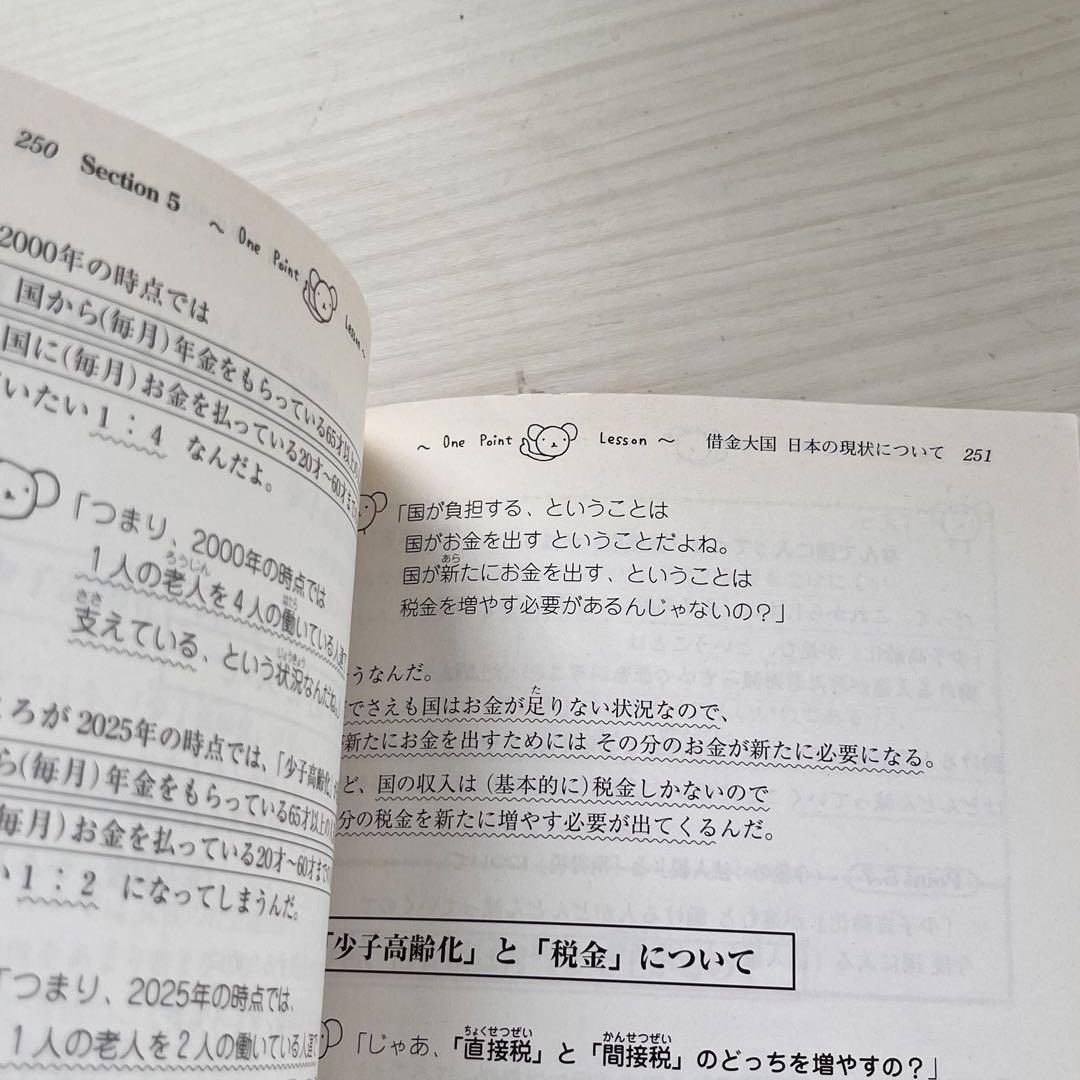 250 Section 5 ～ One Point Lesson～
2000年の時点では
国から(毎月)年金をもらっている65才以上
国に(毎月)お金を払っている20才～60才まで
いたい 1：4 なんだよ。
「つまり、2000年の時点では
1人の老人を4人の働いている人達
ろうじん
はたら
支えている、という状況なんだね」
ささ
じょうきょう
ころが 2025年の時点では、「少子高齢化」
ら(毎月)年金をもらっている65才以上の
毎月)お金を払っている20才～60才まで
い 1：2 になってしまうんだ。
「つまり、2025年の時点では、
1人の老人を2人の働いている人達
～ One Point Lesson ～ 借金大国 日本の現状について 251
「国が負担する、ということは
国がお金を出す ということだよね。
国が新たにお金を出す、ということは
あら
税金を増やす必要があるんじゃないの？」
うなんだ。
でさえも国はお金が足りない状況なので、
た
新たにお金を出すためには その分のお金が新たに必要になる。
ど、国の収入は (基本的に)税金しかないので
分の税金を新たに増やす必要が出てくるんだ。
「少子高齢化」と「税金」について
「じゃあ、「直接税」と「間接税」のどっちを増やすの？」
ちょくせつぜい
かんせつぜい